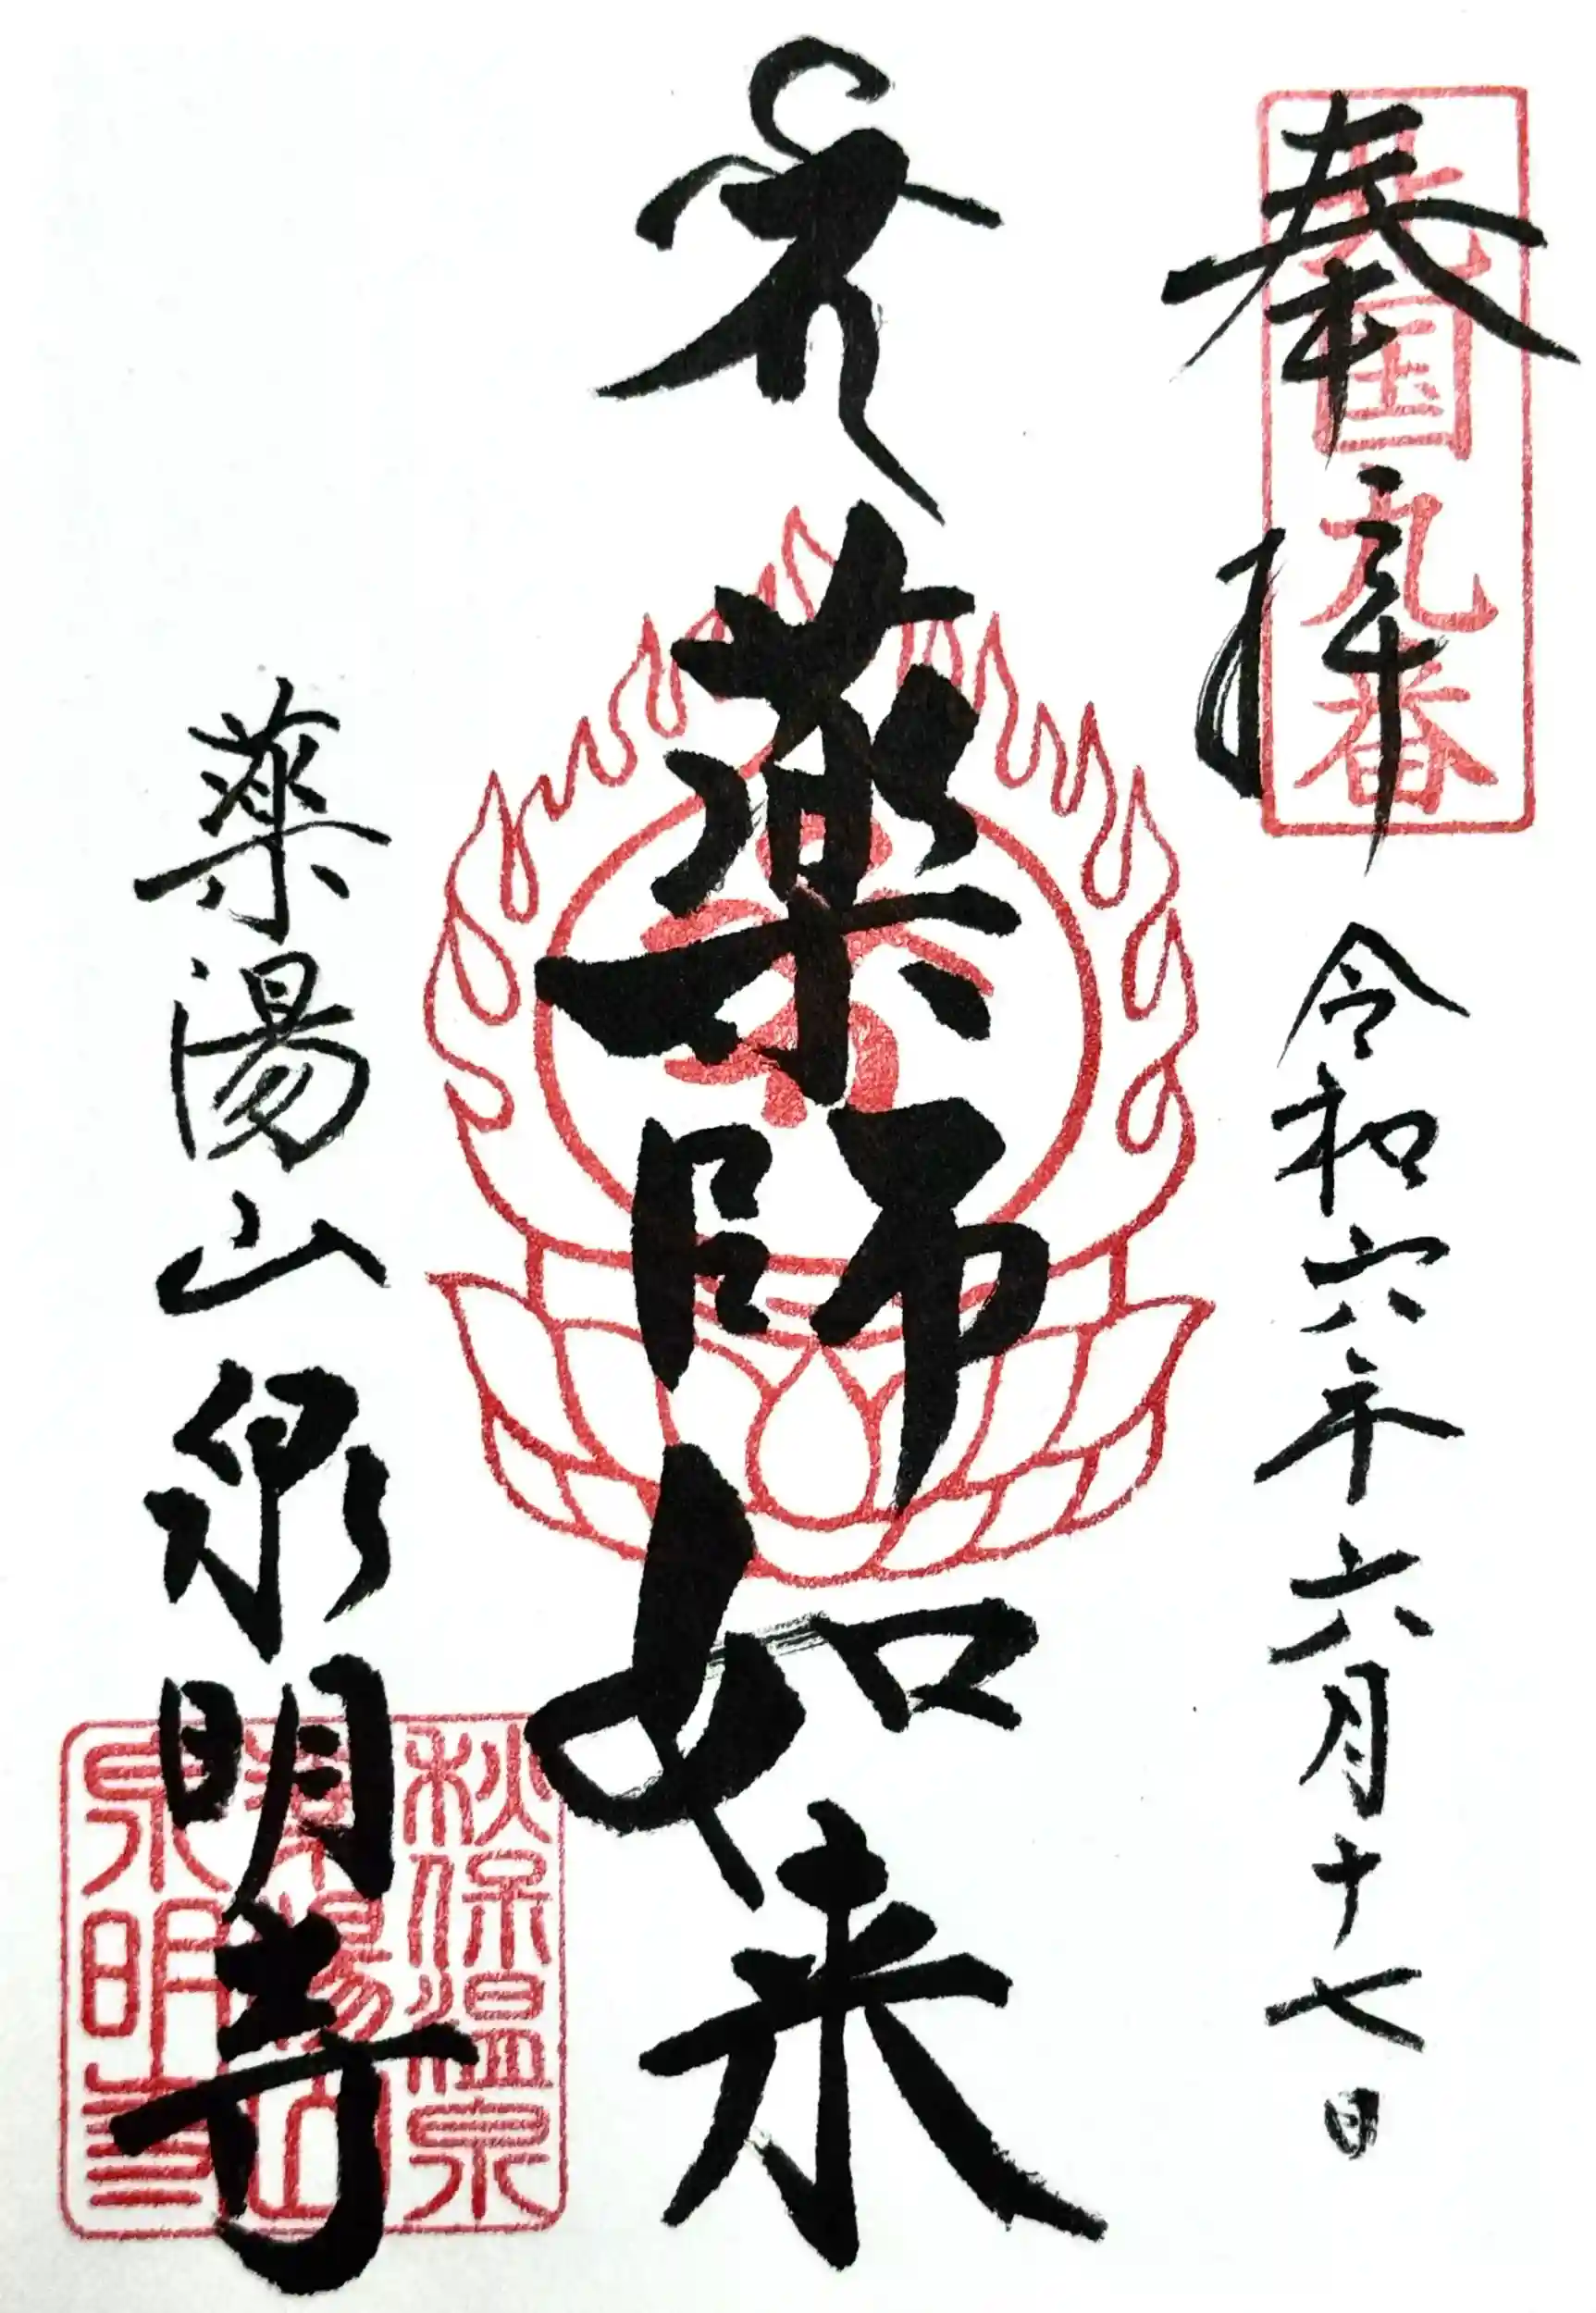 奉拝 令和六年六月十七日
北国九番
薬師如来
薬湯山 泉明寺
秋保温泉
薬湯山
泉明寺